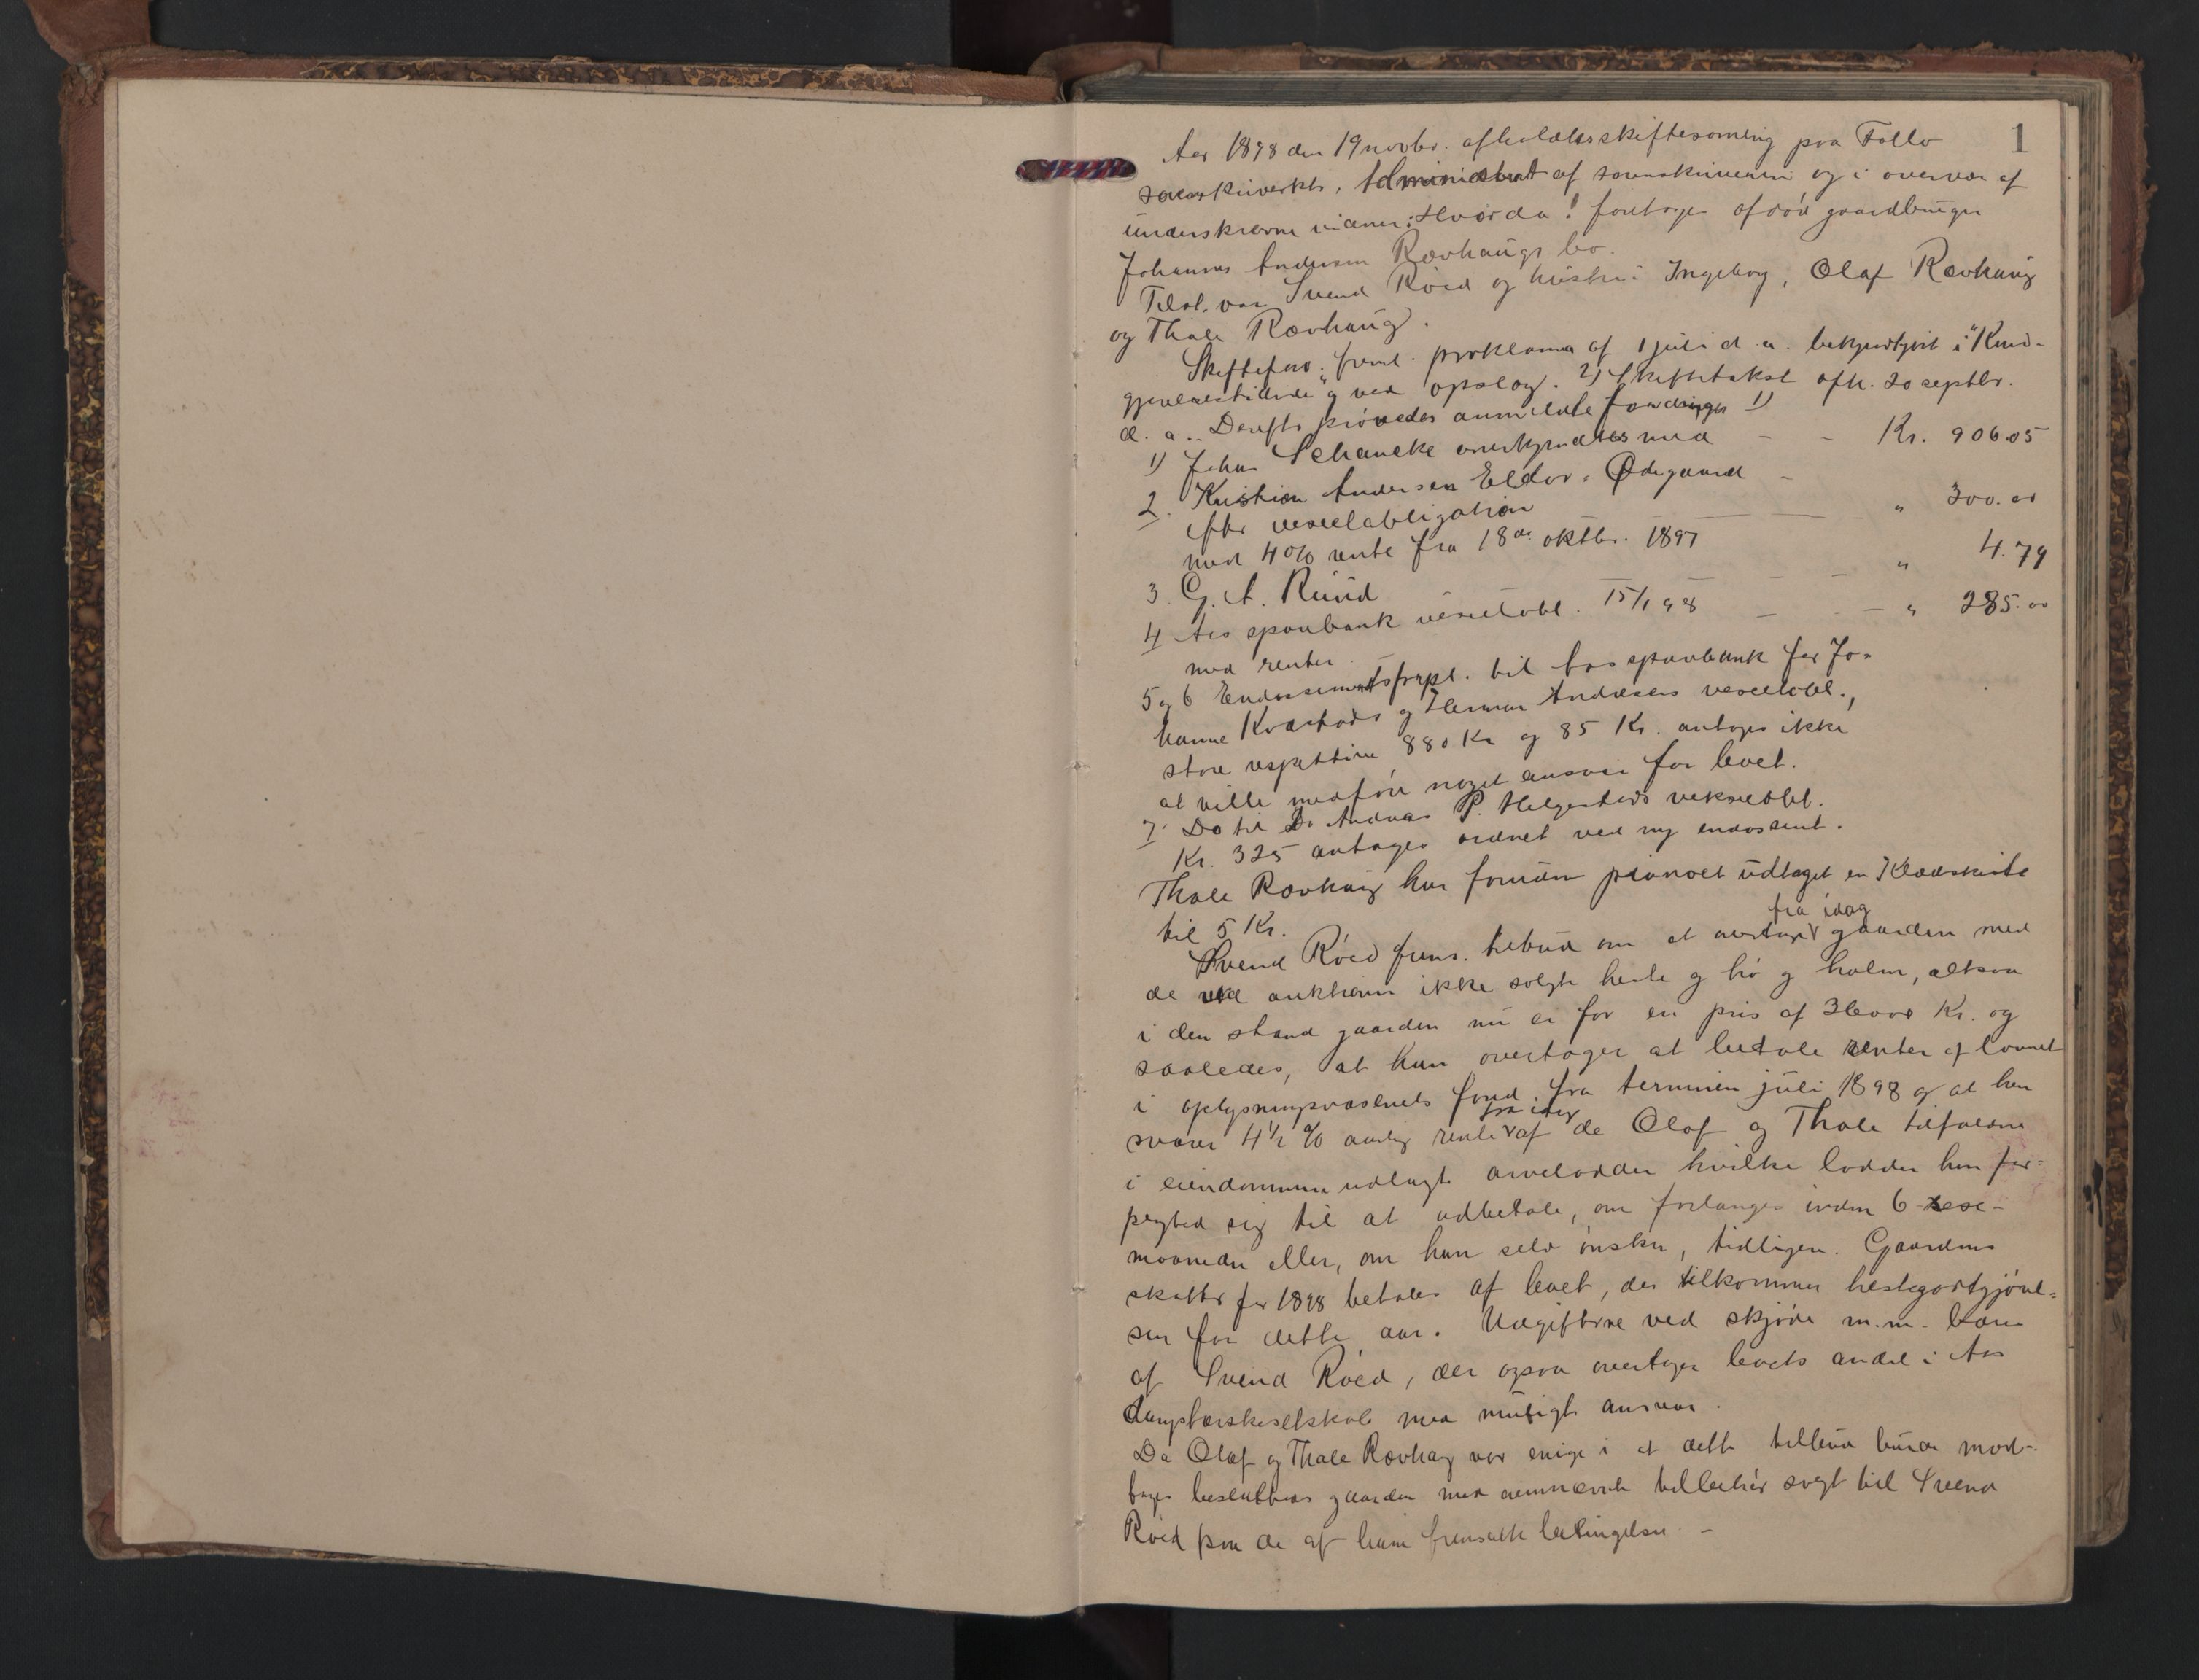 1
Aar 1898 den 19 novbr. afholdtes skiftesamling paa Follo
sorenskriverkt., Administrert af sorenskriveren og i overvær af
underskrevne vidner: Hvorda! foretoges afdød gaardbruger
Johannes Andersen Rævhaugs bo.
Tilst. var Svend Röed og hustru Ingeborg, Olaf Rævhaug
og Thale Rævhaug.
Skifteforv. freml. proklama af 1 juli d. a. bekjendtgjort i "Kund-
gjørelsestidende" og ved opslag. 2) Skiftetakst afh. 20 septbr.
d. a.. Derefter prövedes anmeldte fordringer 1)
1) Johan Schancke anerkjendtes med - - Kr. 906.05
2. Kristian Andersen Eldor. Ødegaard -
efter vexelobligation " 300.00
med 4 % rente fra 18de oktbr. 1897
3. G. A. Ruud - - - " 4.79
4 Aas sparebank vexelobl. 15/1 98 - - - " 285.00
med renter
5 og 6 Endossementsforpl. til Aas sparebank for Jo-
hanne Kværtods og Herman Andersens vexelobl.,
store respektive 880 Kr og 85 Kr. antages ikke
at ville medföre noget ansvar for boet.
7. Do til Do Andreas P. Helgestads vekselobl.
Kr. 325 antages ordnet ved ny endossemt.
Thale Rævhaug har forøvrigt udtaget en Klædeskiste
til 5 Kr.
Svend Röed frems. tilbud om at overtage fra idag gaarden med
de ved auktionen ikke solgte heste og hö og halm, altsaa
i den stand gaarden nu er for en pris af Kr. og
saaledes, at han overtager at betale renter af laanet
i oplysningsvæsenets fond fra terminen juli 1898 og at han
svarer 4 1/2 % aarlig rente fra idag af de Olaf og Thale tilfaldne
i eiendommen udlagte arvelodder hvilke lodder han for-
pligted sig til at udbetale, om forlanges inden 6-sex-
maaneder eller, om han selv önsker, tidligere. Gaardens
skatter for 1898 betales af boet, der tilkommer hestegodtgjörel-
sen for dette aar. Udgifterne ved skjöde m.m. bæres
af Svend Röed, der ogsaa overtager boets andel i Aas
damptærskeselskab med muligt ansvar.
Da Olaf og Thale Rævhaug var enige i at dette tilbud burde mod-
tages besluttedes gaarden med ovennævnte tilbehör solgt til Svend
Röed paa de af ham fremsatte betingelser. -